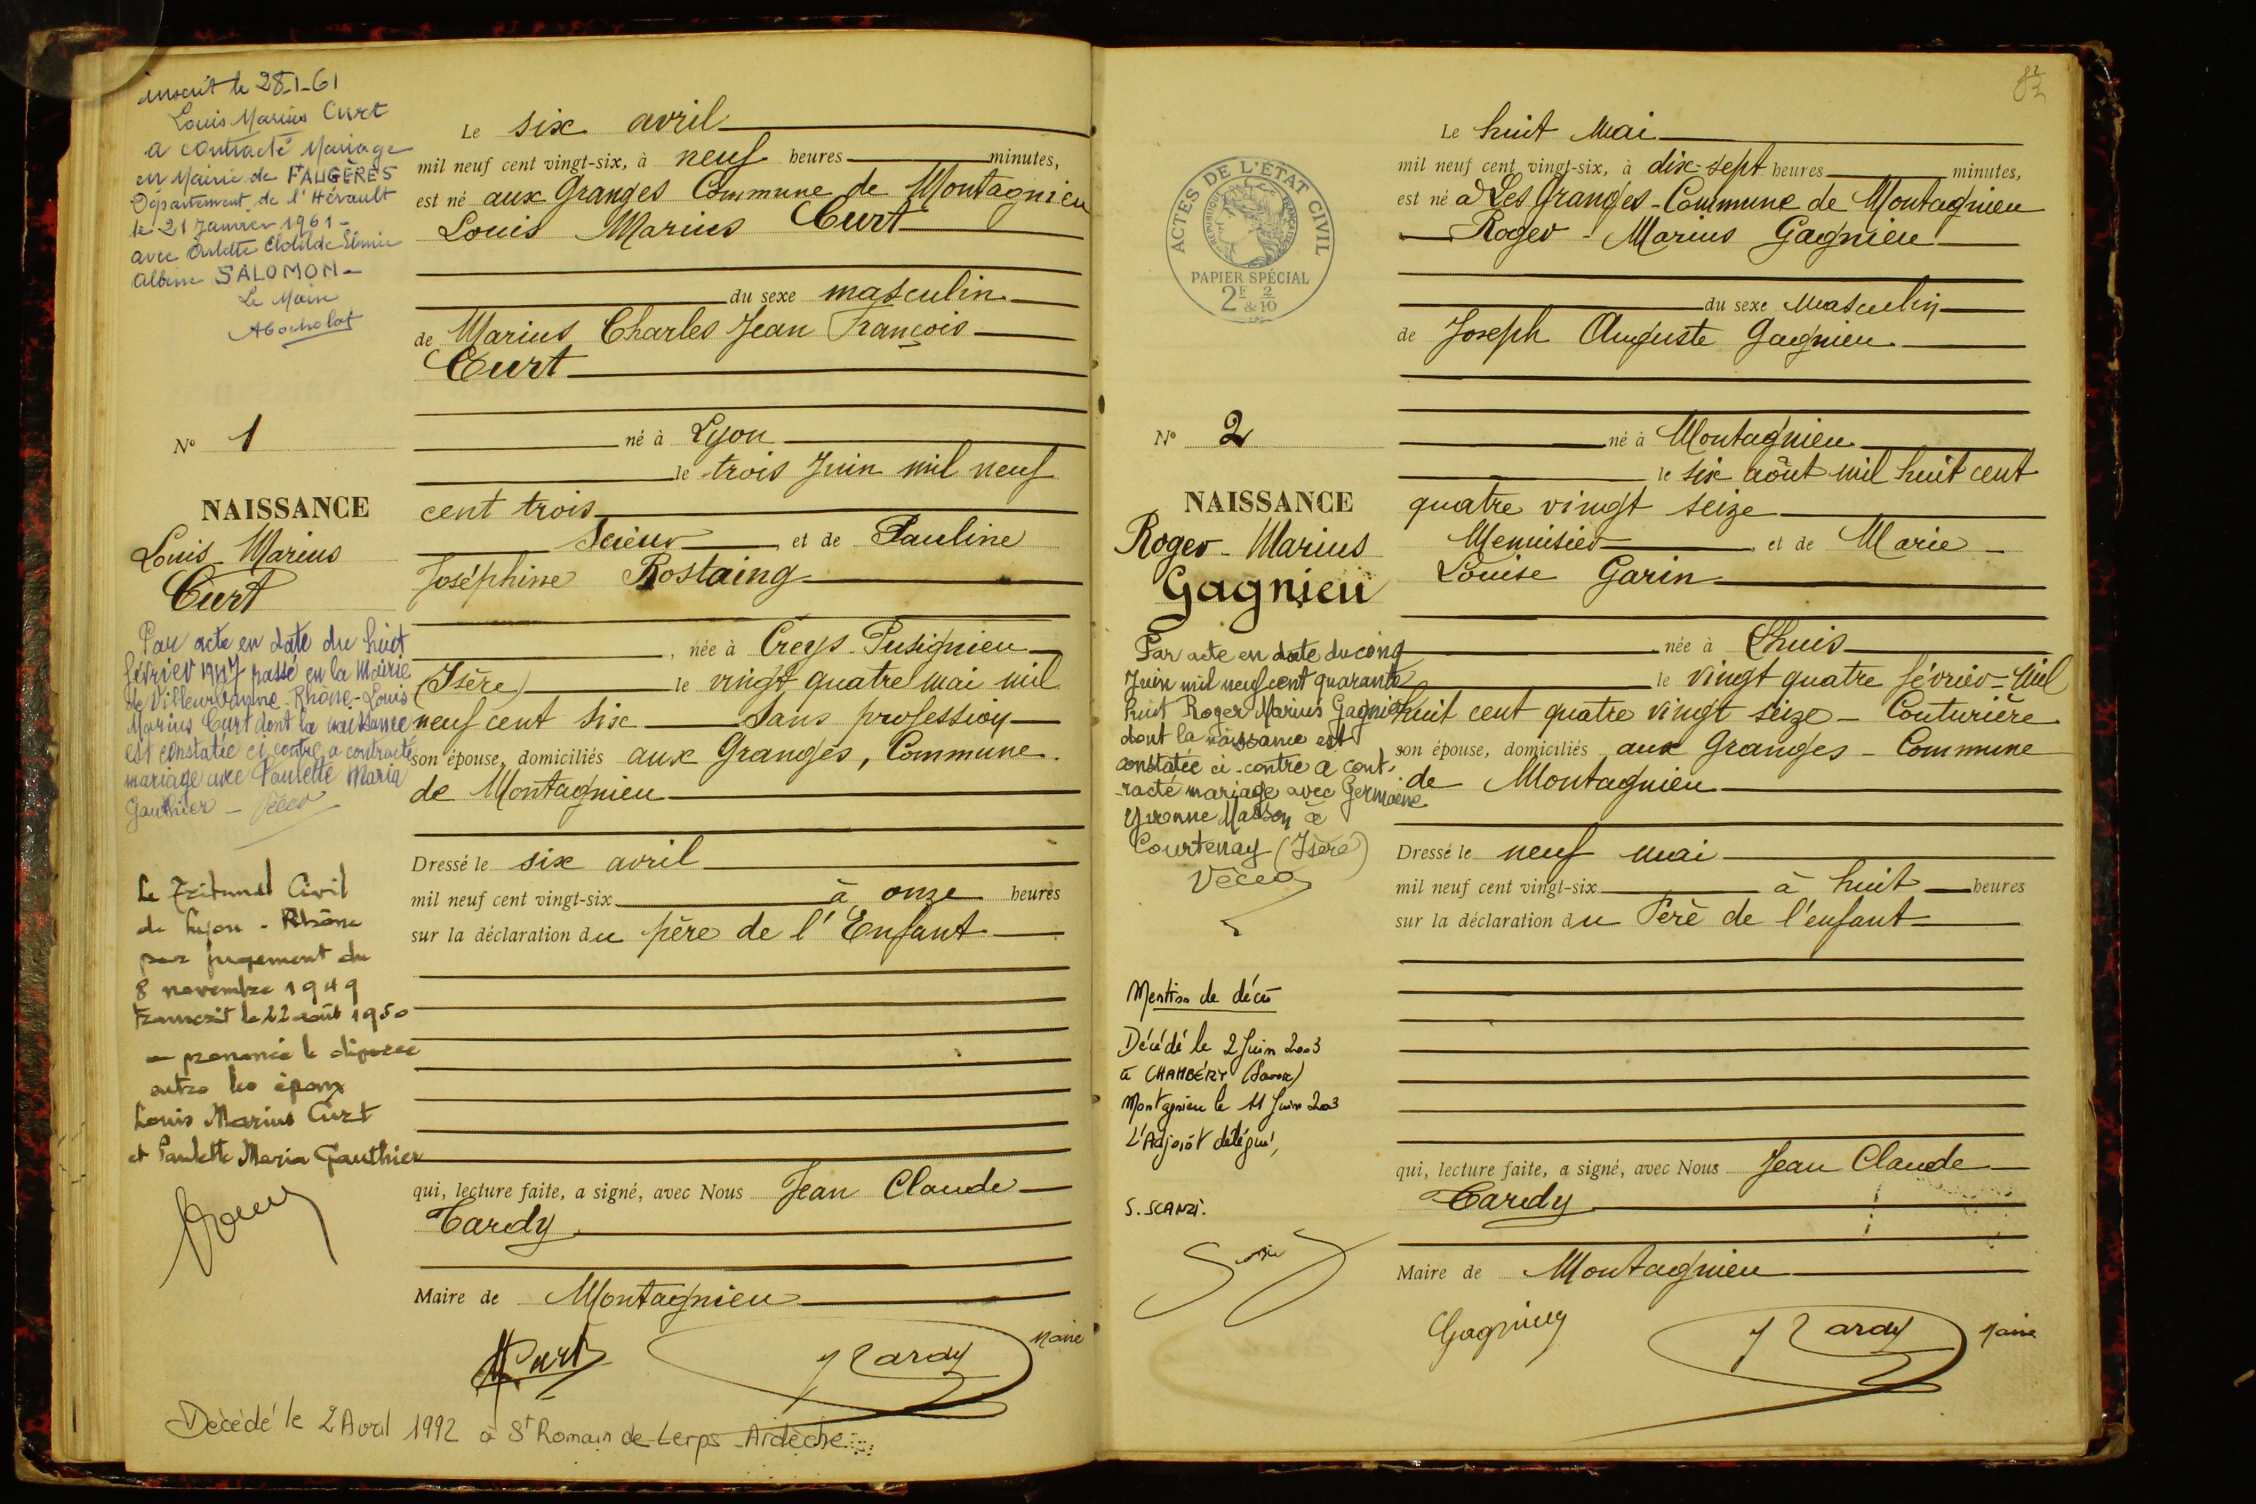 inscrit le 28-1-61
Louis Marius Curt
a contracté Mariage
en Mairie de FAUGÈRES
Département de l'Hérault
le 21 Janvier 1961-
avec Arlette Clotilde
Albine SALOMON-
Le Maire
N° 1
NAISSANCE
Louis-Marius
Curt
Par acte en date du huit
février 1947 passé en la Mairie
de Villeurbanne-Rhône-Louis
Marius Curt dont la naissance
est constatée ci contre a contracté
mariage avec Paulette Maria
Gauthier-
Le Tribunal Civil
de Lyon - Rhône
par jugement du
8 novembre 1949
transcrit le 22 août 1950
a prononcé le divorce
entre les époux
Louis Marius Curt
et Paulette Maria Gauthier
Le six avril
mil neuf cent vingt-six, à neuf heures minutes,
est né aux Granges Commune de Montagnieu
Louis Marius Curt
du sexe masculin
de Marius Charles Jean François
Curt
né à Lyon
le trois Juin mil neuf
cent trois
Scieur et de Pauline
Joséphine Rostaing
, née à Creys-Pusignieu
(Isère) le vingt quatre mai mil
neuf cent six Sans profession
son épouse, domiciliés aux Granges, Commune
de Montagnieu
Dressé le six avril
mil neuf cent vingt-six à onze heures
sur la déclaration du père de l'Enfant
qui, lecture faite, a signé, avec Nous Jean Claude
Tardy
Maire de Montagnieu
Curt Tardy Maire
Décédé le 2 Avril 1992 à St Romain de Lerps - Ardèche
82
ACTES DE L'ÉTAT CIVIL
RÉPUBLIQUE FRANÇAISE
PAPIER SPÉCIAL
2F & 2/10
N° 2
NAISSANCE
Roger-Marius
Gagnieu
Par acte en date du cinq
Juin mil neuf cent quarante
huit Roger Marius Gagnieu
dont la naissance est
constatée ci-contre a cont-
racté mariage avec Germaine
Yvonne Masson à
Courtenay (Isère)
Mention de décès
Décédé le 2 Juin 2003
à CHAMBÉRY (Savoie)
Montagnieu le 11 Juin 2003
L'Adjoint délégué,
S. SCANZI.
Le huit Mai
mil neuf cent vingt-six, à dix-sept heures minutes,
est né à Les Granges-Commune de Montagnieu
Roger-Marius Gagnieu
du sexe Masculin
de Joseph Auguste Gagnieu
né à Montagnieu
le six août mil huit cent
quatre vingt seize
Menuisier , et de Marie
Louise Garin
née à Lhuis
le vingt quatre février-Mil
huit cent quatre vingt seize - Couturière
son épouse, domiciliés aux Granges - Commune
de Montagnieu
Dressé le neuf mai
mil neuf cent vingt-six à huit heures
sur la déclaration du Père de l'enfant
qui, lecture faite, a signé, avec Nous Jean Claude
Tardy
Maire de Montagnieu
Gagnieu Tardy Maire